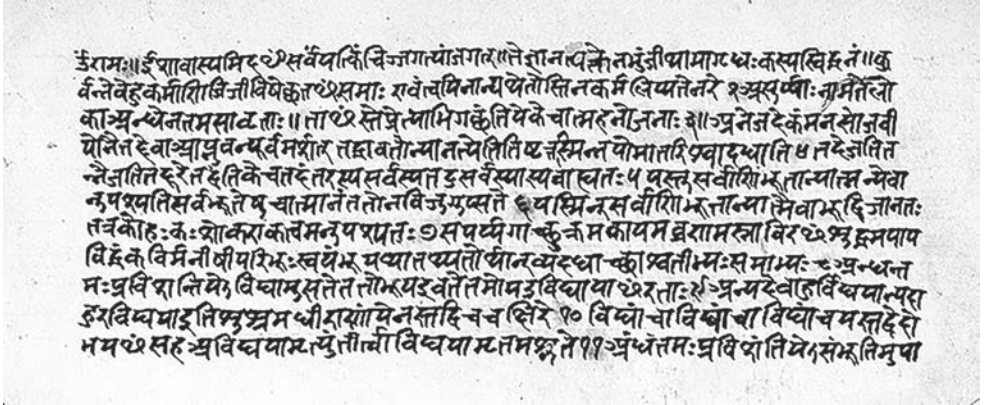 ॐ रामः॥ ईशावास्यमिदꣳ सर्वं यत्किंचिज्जगत्यां जगत्॥ तेन त्यक्तेन भुंजीथा मा गृधः कस्यस्विद्धनं॥ कु
र्वन्नेवेह कर्माणि जिजीविषेच्छतꣳ समाः एवं त्वयि नान्यथेतोस्ति न कर्म लिप्यते नरे २ असुर्य्याः नाम ते लो
का अन्धेन तमसावृताः॥ ताꣳस्ते प्रेत्याभिगच्छंति ये के चात्महनो जनाः ३॥ अनेजदेकं मनसो जवी
यो नैनद्देवा आप्नुवन्पूर्वमर्शत् तद्धावतोन्यानत्येति तिष्टत्तस्मिन्नपो मातरिश्वा दधाति ४ तदेजति त
न्नैजति तद्दूरे तद्वंतिके तदंतरस्य सर्वस्य तदु सर्वस्यास्य बाह्यतः ५ यस्तु सर्वाणि भूतान्यात्मन्येवा
नुपश्यति सर्वभूतेषु चात्मानं ततो न विजुगुप्सते ६ यस्मिन्सर्वाणि भूतान्यात्मैवाभूद्विजानतः
तत्र को मोहः कः शोक एकत्वमनुपश्यतः ७ स पर्य्यगाच्छुक्रमकायमव्रणमस्नाविरꣳ शुद्धमपाप
विद्धं कविर्मनीषी परिभूः स्वयंभूर्याथातथ्यतोर्थान्व्यदधाच्छाश्वतीभ्यः समाभ्यः ८ अन्धन्त
मः प्रविशन्ति येऽविद्यामुपासते ततो भूय इव ते तमो य उ विद्यायाꣳ रताः ९ अन्यदेवाहुर्विद्ययान्यदा
हुरविद्यया इति शुश्रुम धीराणां ये नस्तद्विचचक्षिरे १० विद्यां चाविद्यां च यस्तद्वेदो
भयꣳ सह अविद्यया मृत्युं तीर्त्वा विद्ययामृतमश्नुते ११ अंधंतमः प्रविशंति येऽसंभूतिमुपा